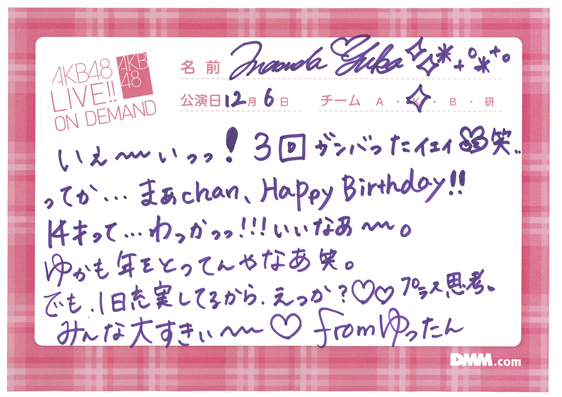 AKB48
LIVE!!
ON DEMAND
AKB
48
名前 Masuda Yuka
公演日 12月6日 チーム A・K・B・研
いぇ〜いっっ!3回ガンバったイェイ笑..
ってか…まぁchan、Happy Birthday!!
14才って…わっかっっ!!!いいなあ〜。
ゆかも年をとってんやなあ笑。
でも、1日充実してるから、えっか?♡♡プラス思考。
みんな大すきぃ〜♡ fromゆったん
DMM.com